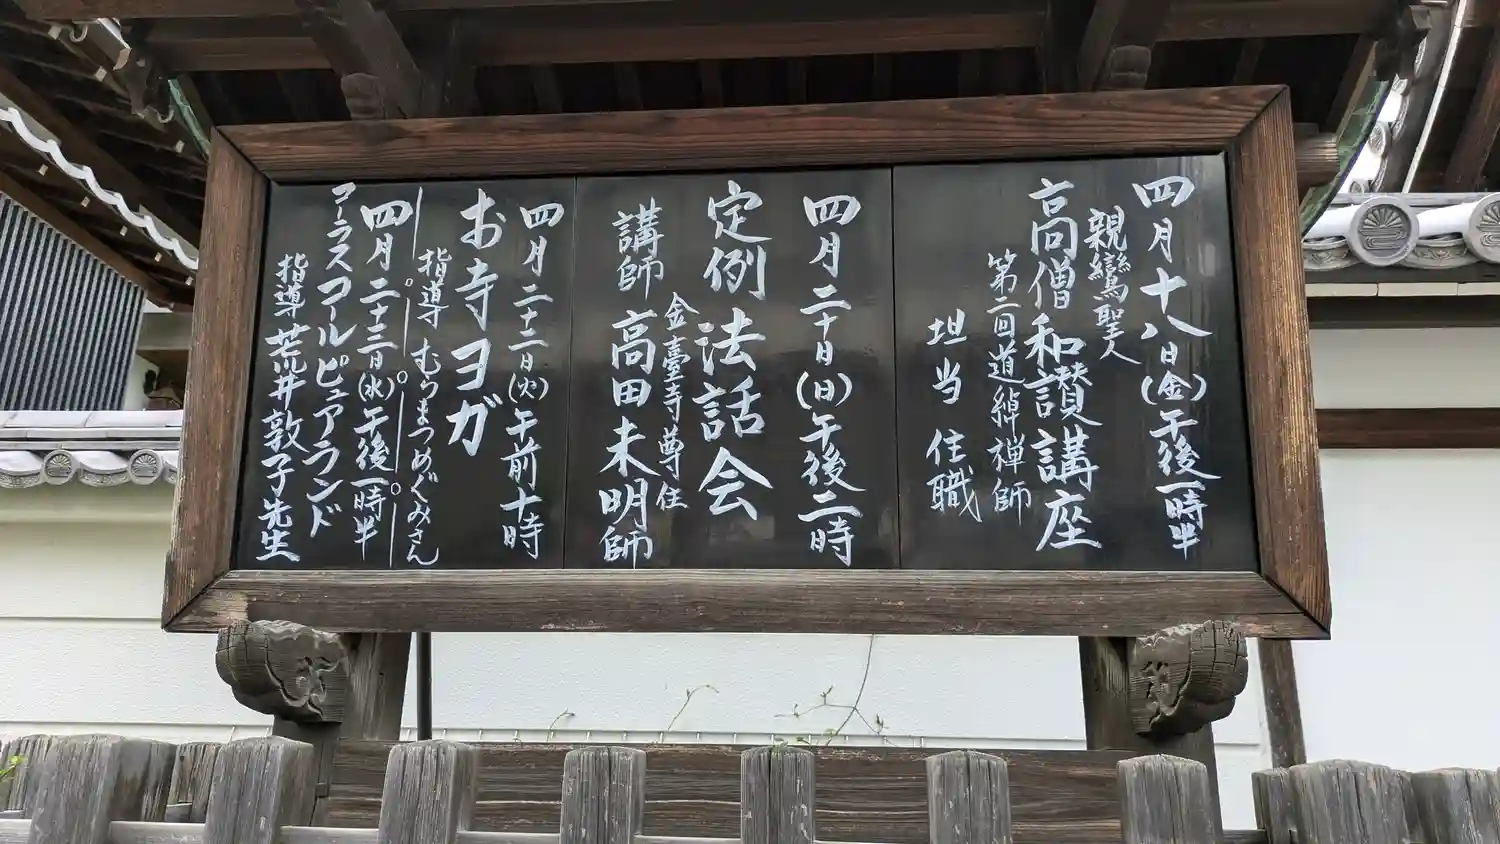 四月十八日(金)午後一時半
親鸞聖人
高僧和讃講座
第二回道綽禅師
担当 住職
四月二十日(日)午後二時
定例法話会
金臺寺尊住
講師 高田未明師
四月二十二日(火)午前十時
お寺ヨガ
指導 むらまつめぐみさん
四月二十三日(水)午後一時半
コーラスコールピュアランド
指導 荒井敦子先生